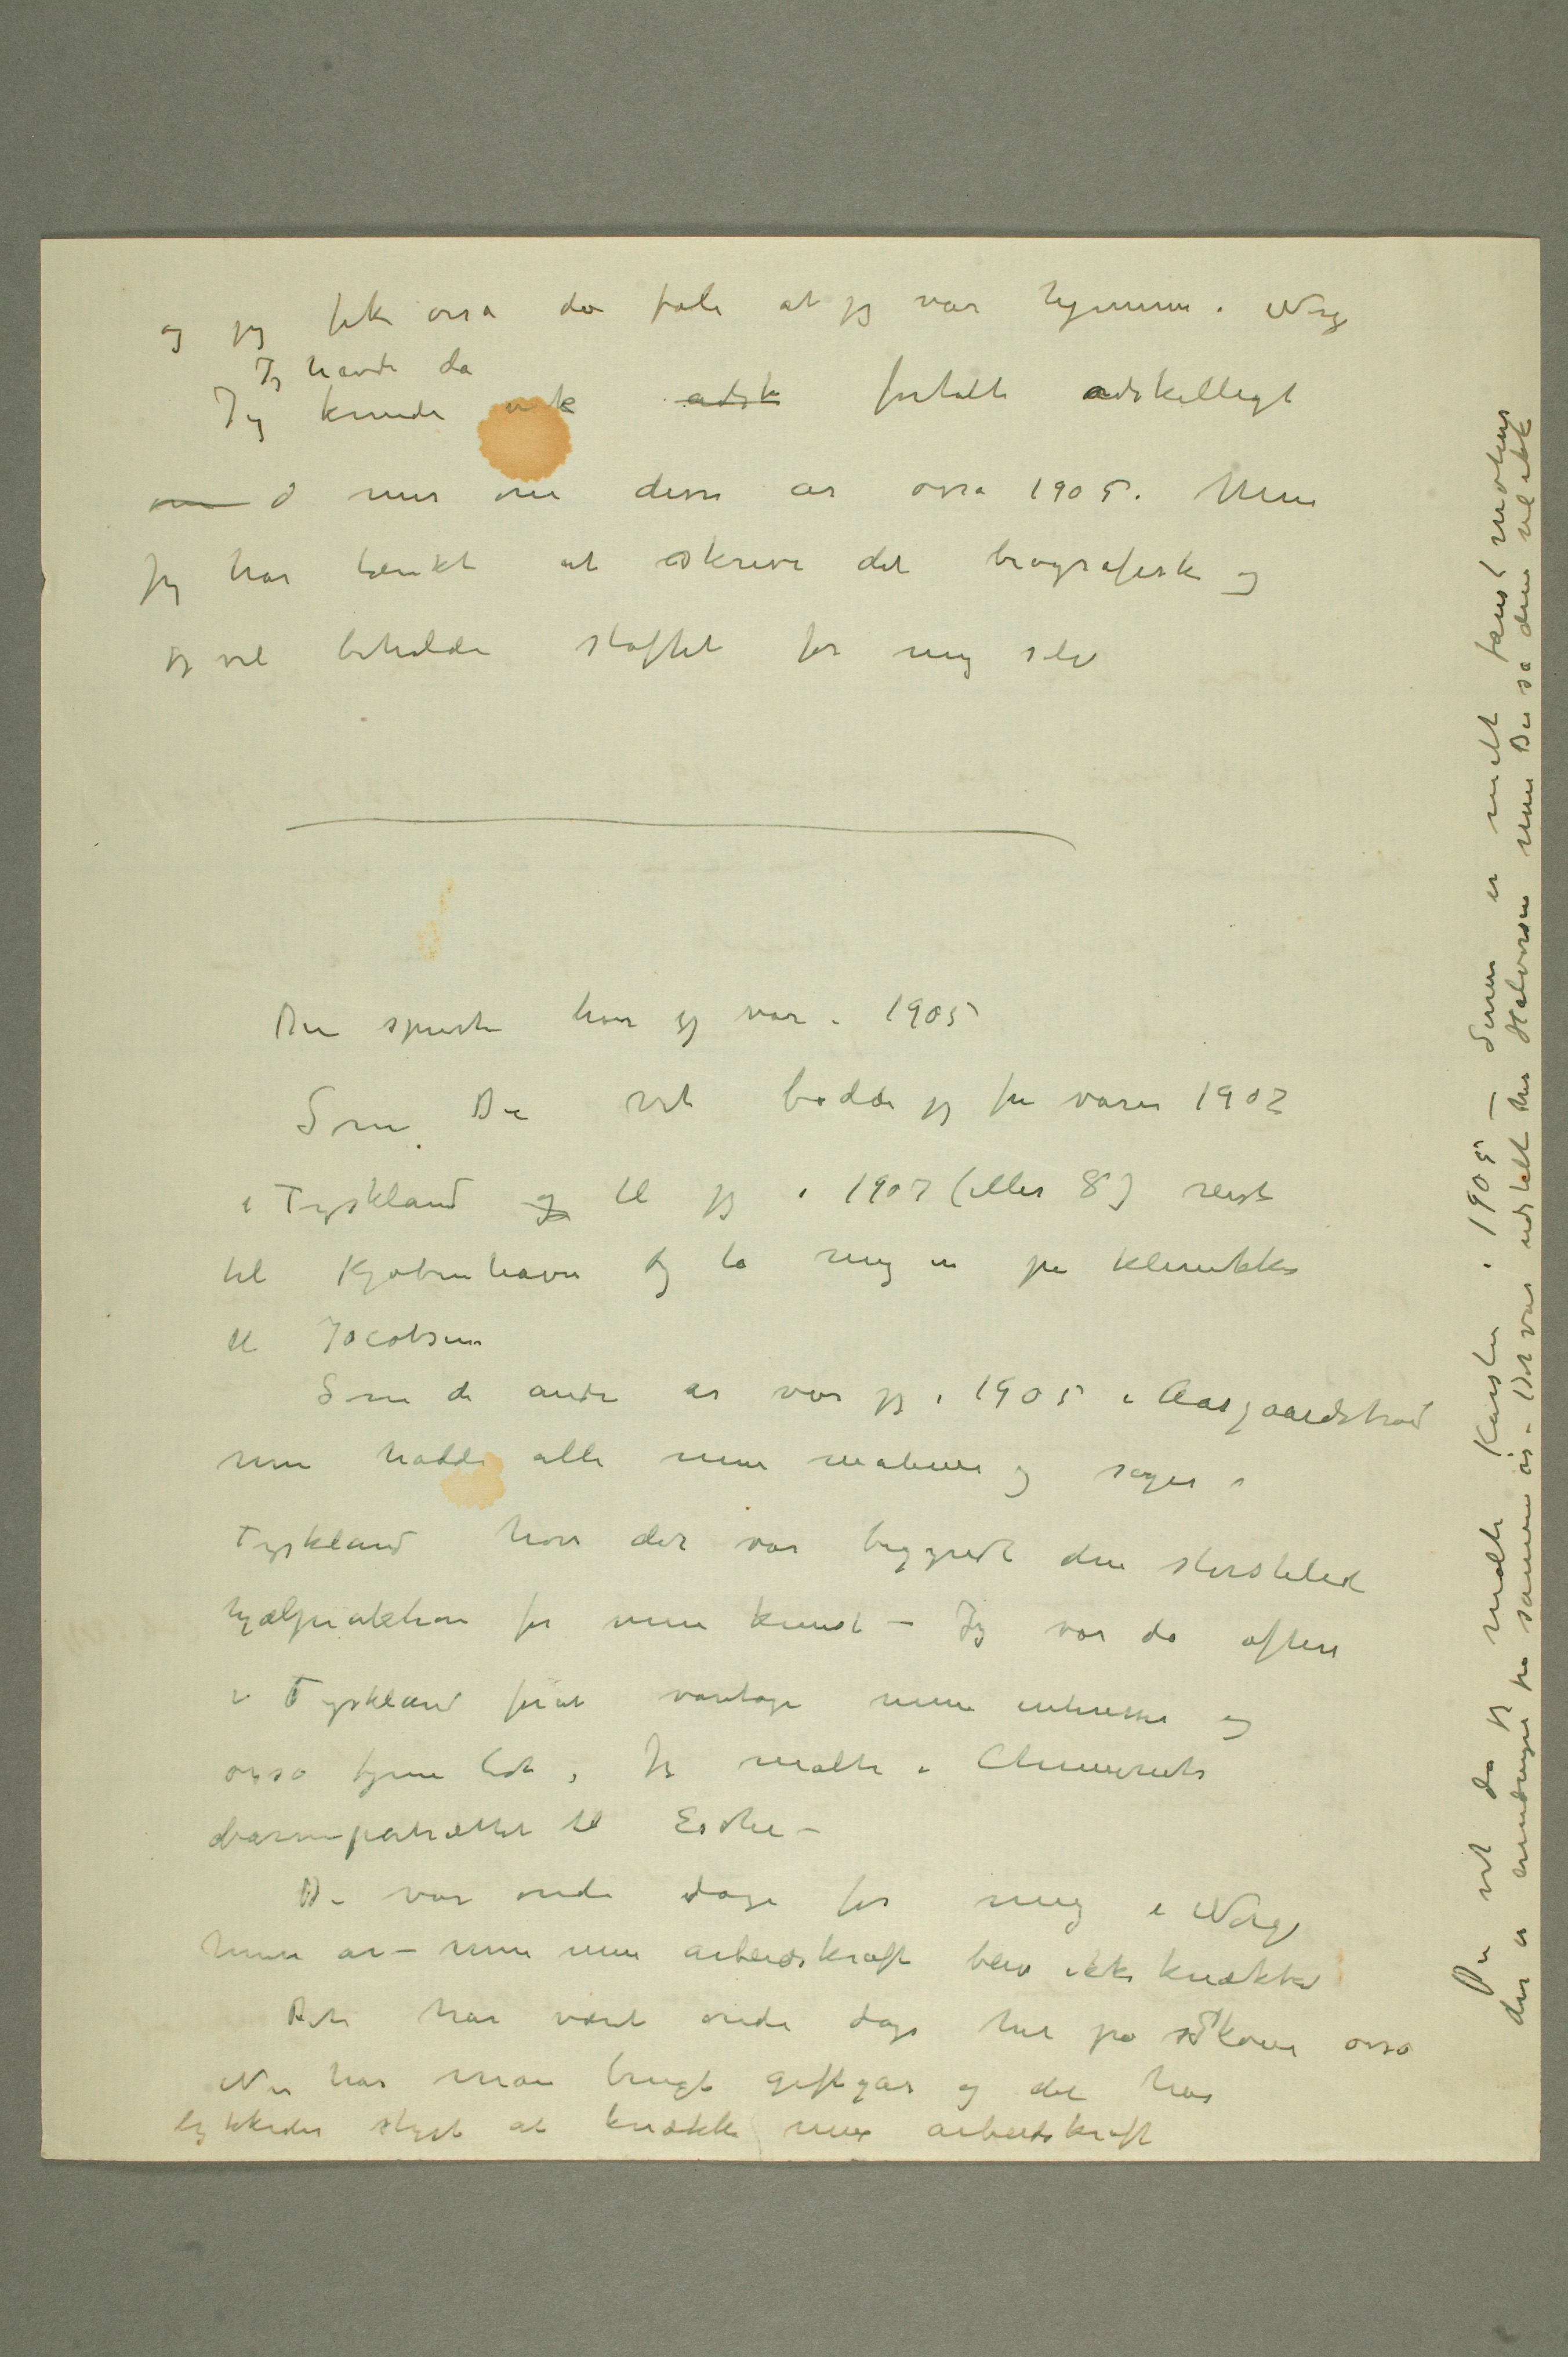 og jeg fik osså da føle at jeg var hjemme i Norge
Jeg havde da
Jeg kunde nok adsk fortælle adskilligt
om d mer om disse år osså 1905. Men
Jeg har tænkt at skrive det biografisk og
jeg vil beholde stoffet for mig selv
Du spurte hvor jeg var i 1905
Som Du vet bodde jeg fra våren 1902
i Tyskland og til jeg i 1907 (eller 8) reiste
til Kjøbenhavn og la mig in på klinikken
til Jacobsen
Som de andre år var jeg i 1905 i Aasgaardstrand
men hadde alle mine malerier og sager i
Tyskland hvor det var begyndt den storstilede
hjælpeaktion for min kunst – Jeg var da oftere
i Tyskland forat varetage mine interesser og
osså tjene lidt, Jeg malte i Chemnitz
barneportrættet til Esche –
Det var onde dage for mig i Norge
disse år – men min arbeidskraft blev ikke knækket
Det har været onde dage her på Skøien osså
Nu har man brugt giftgas og det har
lykkedes slyst at knække min arbeidskraft
Du vet da jeg malte Karsten i 1905 – Samme er malt fandt
der er endringer på samme år. Det var udstillet hos Halvorsen men Du så den vel ikke